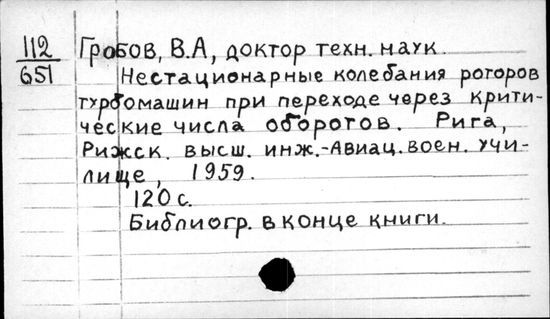 112
651
Гробов, В.А, доктор техн. наук.
Нестационарные колебания роторов
турбомашин при переходе через крити-
ческие числа оборотов. Рига,
Рижск. высш. инж.-Авиац. воен. учи-
лище, 1959.
120 с.
Библиогр. в конце книги.